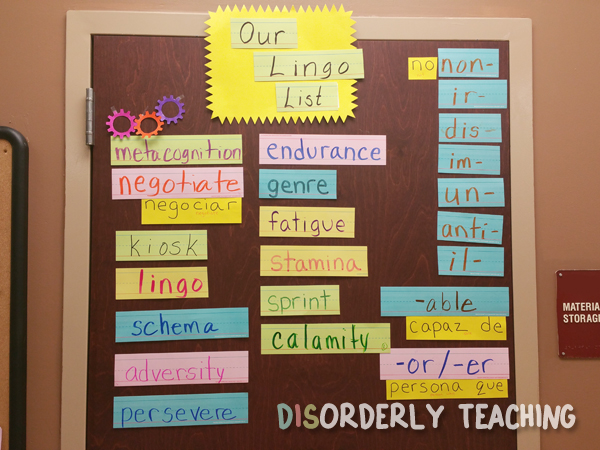 Our
Lingo
List
metacognition
negotiate
negociar
kiosk
lingo
schema
adversity
persevere
endurance
genre
fatigue
stamina
sprint
calamity
no non-
ir-
dis-
im-
un-
anti-
il-
-able
capaz de
-or/-er
persona que
MATERIA
STORAGE
DISORDERLY TEACHING